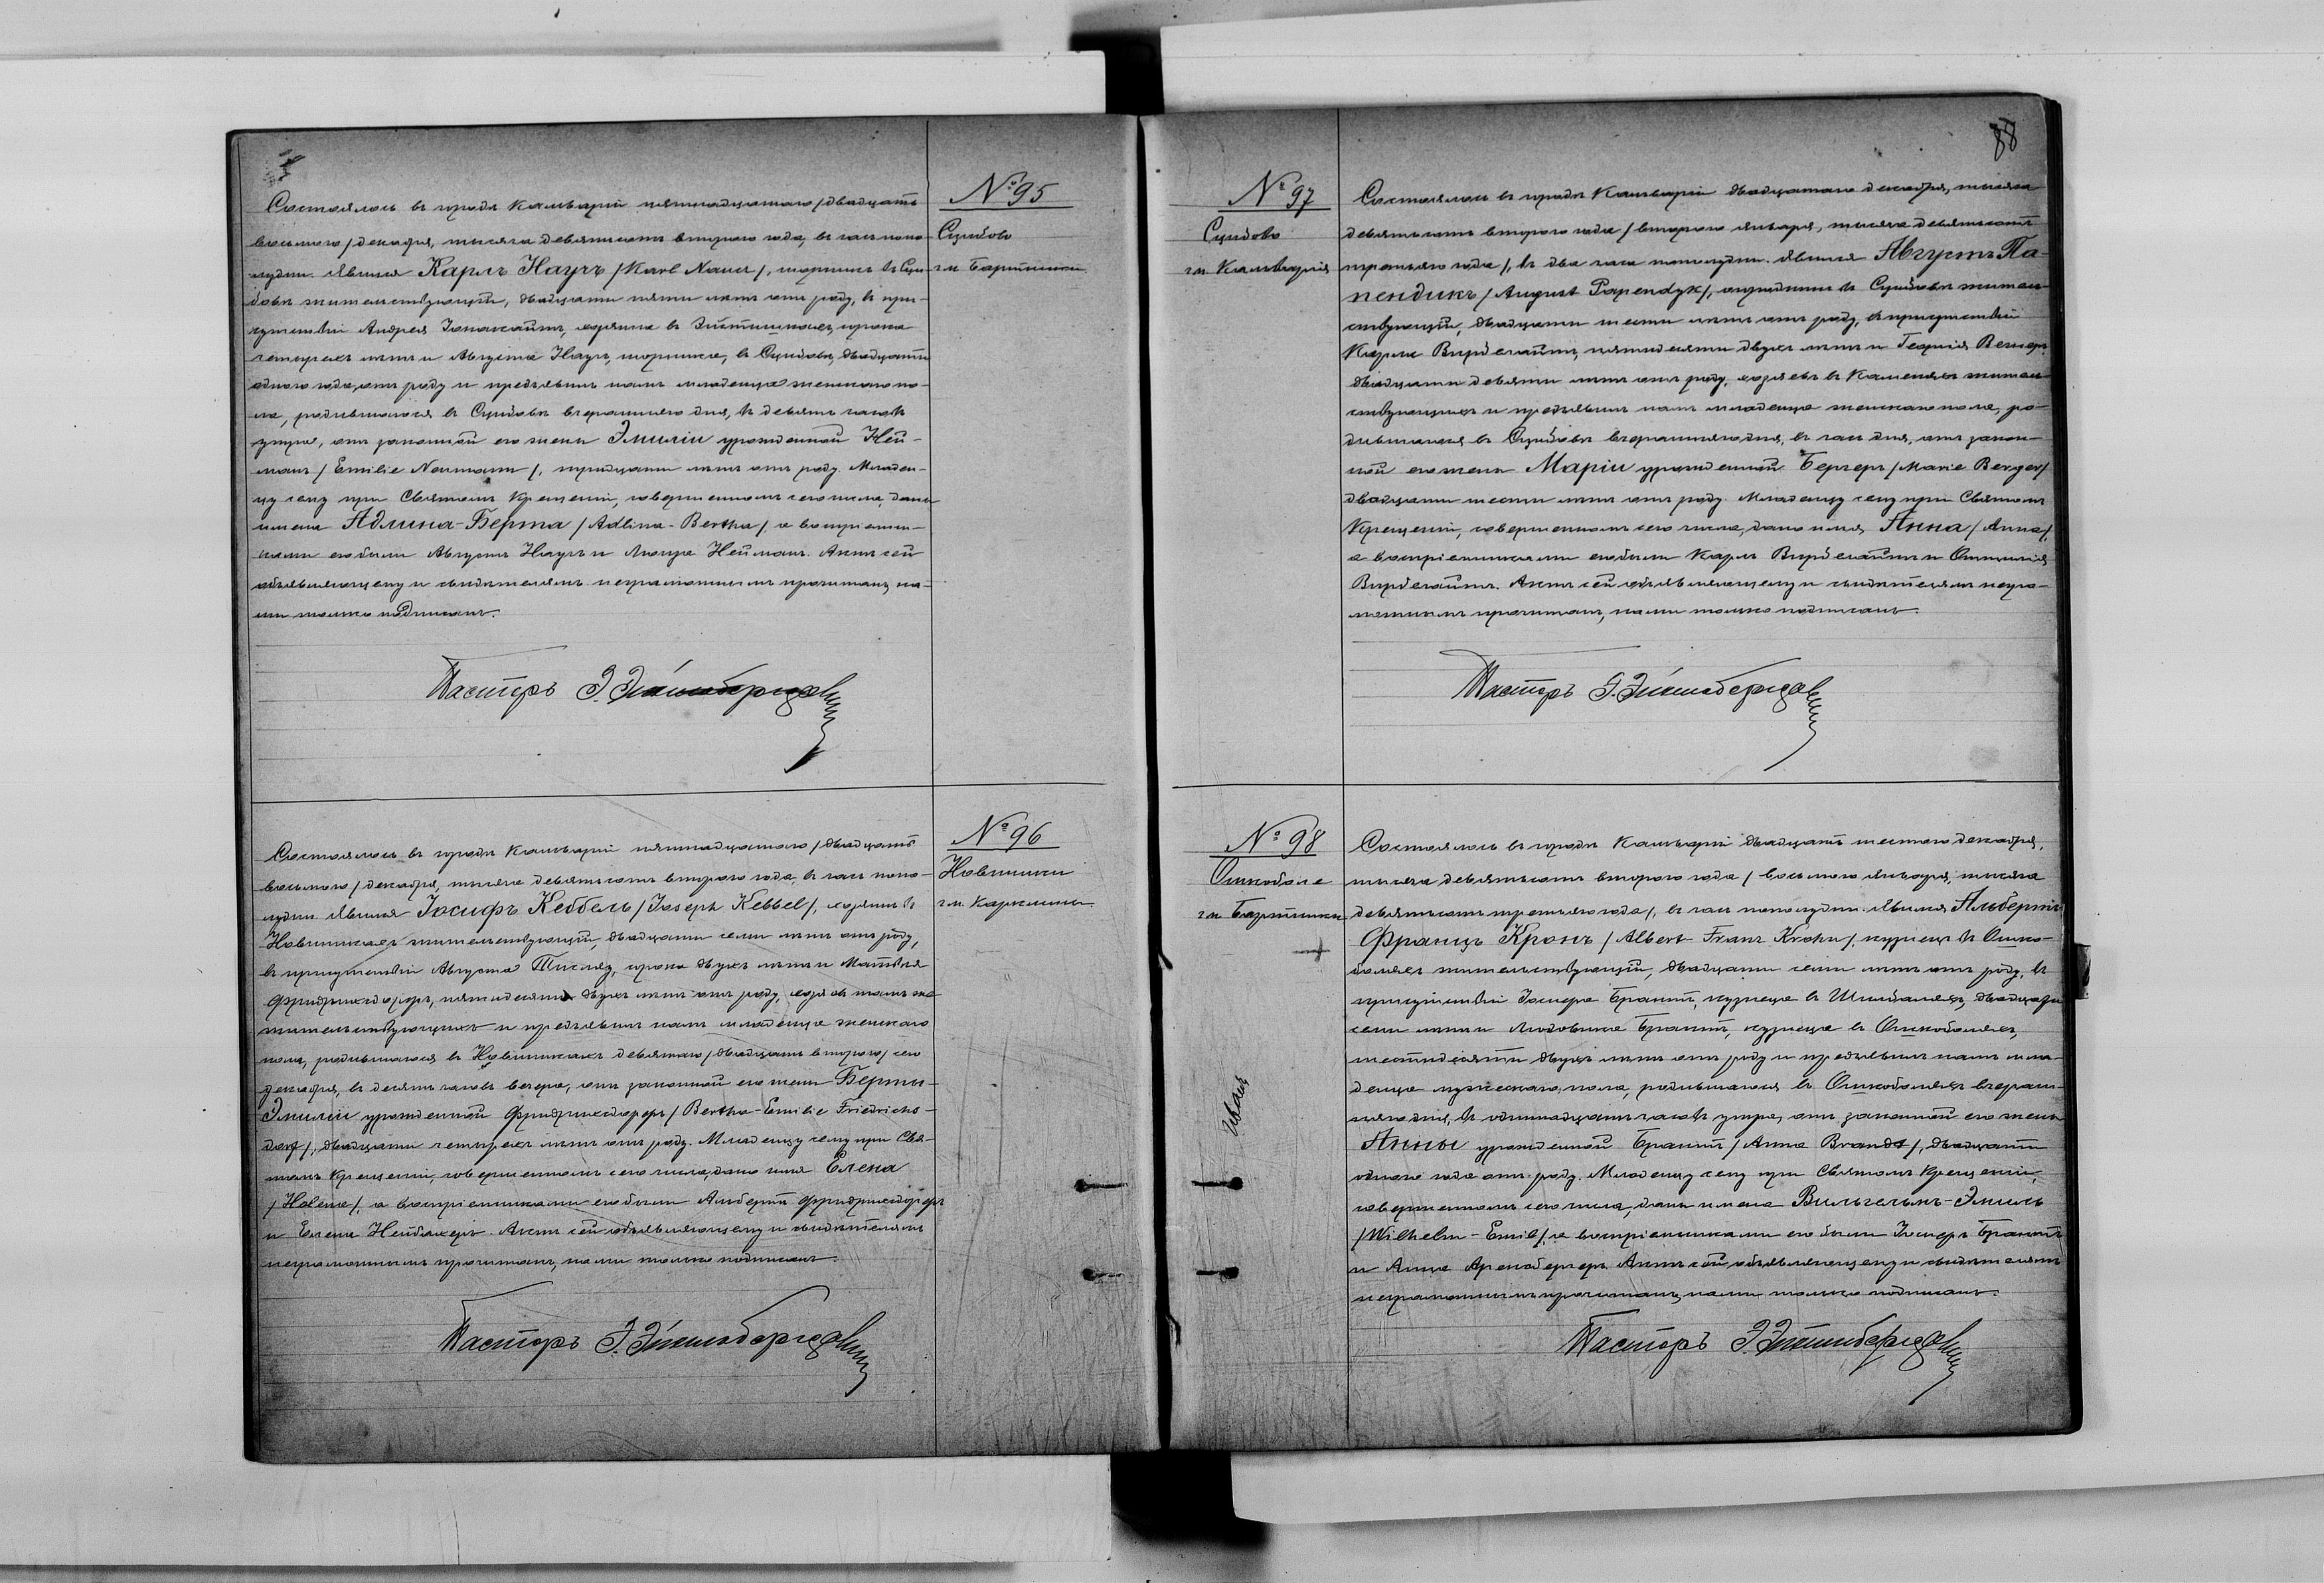 № 95
Судбово
гм. Бартники
Состоялось въ городѣ Кальваріи пятнадцатаго /двадцать
восьмого/ декабря, тысяча девятьсотъ второго года, въ часъ попо-
лудни. Явился Карлъ Науръ /Karl Nauer/, въ
жительствующій, двадцати пяти лѣтъ отъ роду, въ при-
сутствіи Андрея хозяина въ сорока
четырехъ лѣтъ и Августа Науръ, въ двадцати
одного года, отъ роду и предъявилъ намъ младенца женскаго по-
ла, родившагося въ вчерашняго дня, въ девять часовъ
утра, отъ законной его жены Эмиліи урожденной Ней-
манъ /Emilie Neumann/, тридцати лѣтъ отъ роду. Младен-
цу сему при Святомъ Крещеніи, совершенномъ сего числа, даны
имена Адлина-Берта /Adlina-Bertha/ а воспріемни-
ками его были Августъ Науръ и Нейманъ. Актъ сей
объявляющему и свидѣтелямъ неграмотнымъ прочитанъ, на-
ми только подписанъ.
Пасторъ
№ 96
Новинники
гм.
Состоялось въ городѣ Кальваріи пятнадцатаго /двадцать
восьмого/ декабря, тысяча девятьсотъ второго года, въ часъ попо-
лудни. Явился Іосифъ Кеббель /Joseph Kebbel/, хозяинъ въ
Новинникахъ жительствующій, двадцати семи лѣтъ отъ роду,
въ присутствіи Августа сорока двухъ лѣтъ и Матвѣя
Фридрихсдорфъ, пятидесяти двухъ лѣтъ отъ роду, хозяевъ тамъ же
жительствующихъ и предъявилъ намъ младенца женскаго
пола, родившагося въ Новинникахъ девятаго /двадцать второго/ сего
декабря, въ десять часовъ вечера, отъ законной его жены Берты-
Эмиліи урожденной Фридрихсдорфъ /Bertha-Emilie Friedrichs-
dorf/, двадцати четырехъ лѣтъ отъ роду. Младенцу сему при Свя-
томъ Крещеніи, совершенномъ сего числа, дано имя Елена
/Helene/, а воспріемниками его были Альбертъ Фридрихсдорфъ
и Елена Нейбахеръ. Актъ сей объявляющему и свидѣтелямъ
неграмотнымъ прочитанъ, нами только подписанъ.
Пасторъ
88
№ 97
Судбово
гм. Кальварія
Состоялось въ городѣ Кальваріи двадцатаго декабря, тысяча
девятьсотъ второго года /второго января, тысяча девятьсотъ
третьяго года/, въ два часа пополудни. Явился Августъ Па-
пендикъ /August Papendyk/, въ житель-
ствующій, двадцати шести лѣтъ отъ роду, въ присутствіи
Карла пятидесяти двухъ лѣтъ и Георгія
двадцати девяти лѣтъ отъ роду, хозяевъ въ житель-
ствующихъ и предъявилъ намъ младенца женскаго пола, ро-
дившагося въ вчерашняго дня, въ часъ дня, отъ закон-
ной его жены Маріи урожденной Бергеръ /Marie Berger/
двадцати шести лѣтъ отъ роду. Младенцу сему при Святомъ
Крещеніи, совершенномъ сего числа, дано имя Анна /Anna/,
а воспріемниками его были Карлъ и
Актъ сей объявляющему и свидѣтелямъ негра-
мотнымъ прочитанъ, нами только подписанъ.
Пасторъ
№ 98
Ошкоболе
гм. Бартники
Состоялось въ городѣ Кальваріи двадцать шестого декабря,
тысяча девятьсотъ второго года /восьмого января, тысяча
девятьсотъ третьяго года/, въ часъ пополудни. Явился Альбертъ
Францъ Кронъ /Albert Franz Krohn/, кузнецъ въ Ошко-
боляхъ жительствующій, двадцати семи лѣтъ отъ роду, въ
присутствіи Брантъ, кузнеца въ двадцати
семи лѣтъ и Людовика Брантъ, кузнеца въ Ошкоболяхъ,
шестидесяти двухъ лѣтъ отъ роду и предъявилъ намъ мла-
денца мужескаго пола, родившагося въ Ошкоболяхъ вчераш-
няго дня, въ одиннадцать часовъ утра, отъ законной его жены
Анны урожденной Брантъ /Anna Brandt/, двадцати
одного года отъ роду. Младенцу сему при Святомъ Крещеніи,
совершенномъ сего числа, даны имена Вильгельмъ-Эмиль
/Wilhelm-Emil/, а воспріемниками его были Брантъ
и Анна Актъ сей объявляющему и свидѣтелямъ
неграмотнымъ прочитанъ, нами только подписанъ.
Пасторъ